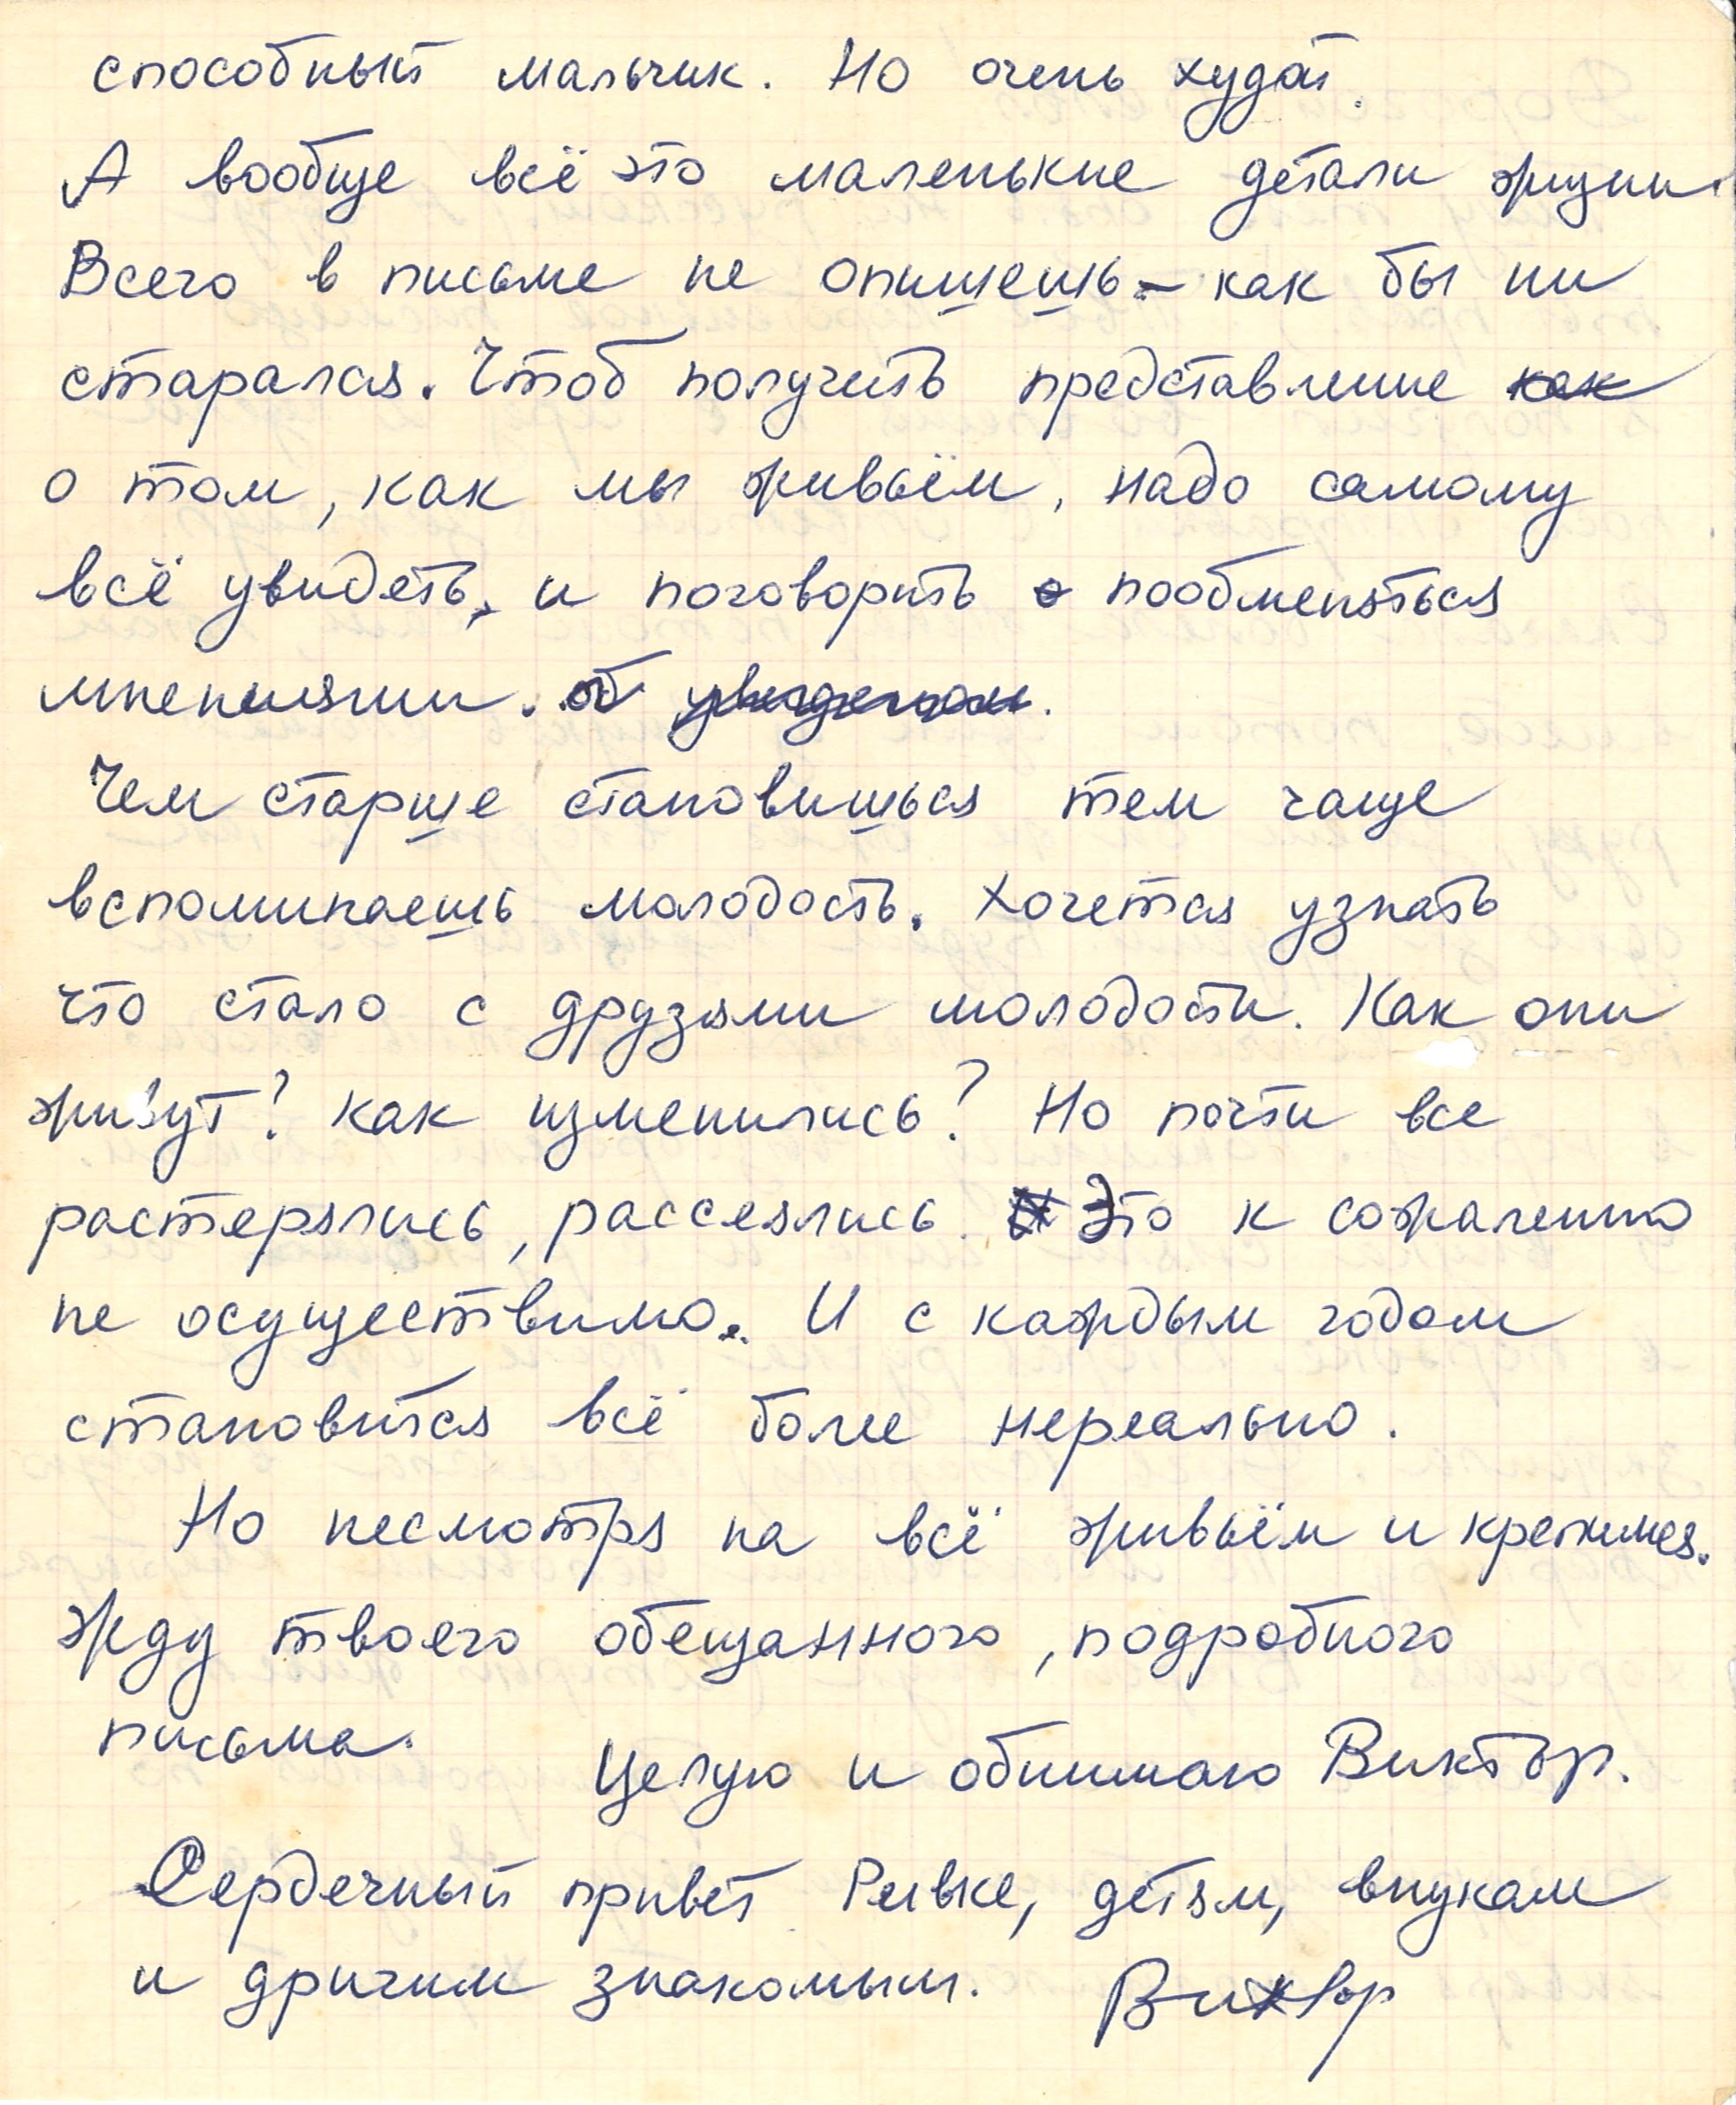 способный мальчик. Но очень худой.
А вообще всё это маленькие детали жизни.
Всего в письме не опишешь – как бы ни
старался. Чтоб получить представление как
о том, как мы живьём, надо самому
всё увидеть, и поговорить о пообменяться
мнениями. об увиденном.
Чем старше становишься тем чаще
вспоминаешь молодость. Хочется узнать
что стало с друзьями молодости. Как они
живут? Как изменились? Но почти все
растерялись, рассеялись. Это к сожалению
не осуществимо. И с каждым годом
становится всё более нереально.
Но несмотря на всё живьём и крепимся.
Жду твоего обещанного, подробного
письма.
Целую и обнимаю Виктор.
Сердечный привет Ривке, детям, внукам
и дричим знакомым. Виктор